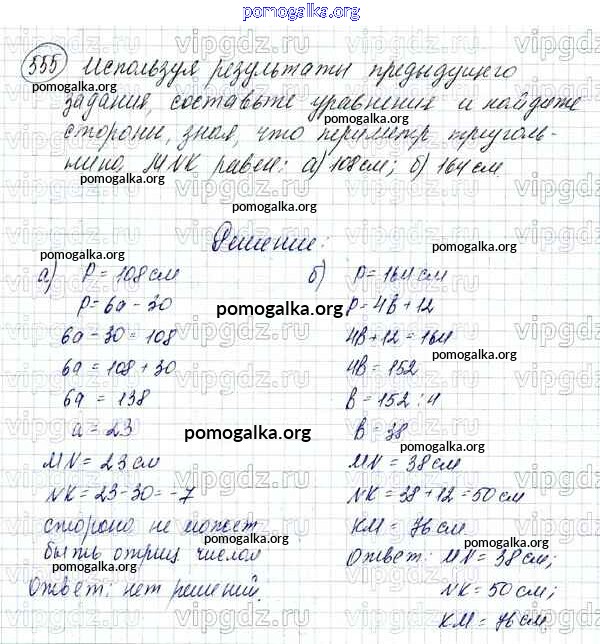 pomogalka.org
555 Используя результаты предыдущего
задания, составьте уравнения и найдите
стороны, зная, что периметр треуголь-
ника MNK равен: а) 108 см; б) 164 см.
pomogalka.org
pomogalka.org
Решение:
pomogalka.org
pomogalka.org
а) P = 108 см
P = 6a - 30
6a - 30 = 108
6a = 108 + 30
6a = 138
a = 23
MN = 23 см
NK = 23 - 30 = -7
сторона не может
быть отриц числом
Ответ: нет решений.
pomogalka.org
pomogalka.org
б) P = 164 см
P = 4B + 12
4B + 12 = 164
4B = 152
B = 152 : 4
B = 38
MN = 38 см
NK = 38 + 12 = 50 см
KM = 76 см
Ответ: MN = 38 см;
NK = 50 см;
KM = 76 см
pomogalka.org
pomogalka.org
pomogalka.org
vipgdz.ru